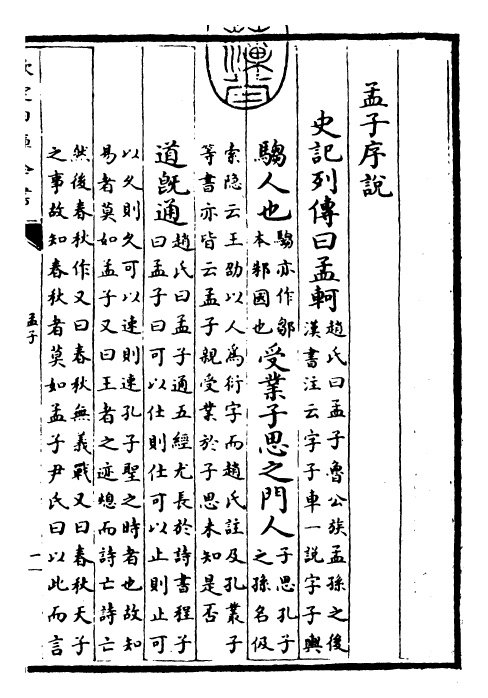 孟子序說
史記列傳曰孟軻
趙氏曰孟子魯公族孟孫之後
漢書注云字子車一説字子輿
騶人也
騶亦作鄒
本邾國也
受業子思之門人
子思孔子
之孫名伋
索隐云王劭以人為衍字而趙氏註及孔叢子
等書亦皆云孟子親受業於子思未知是否
道旣通
趙氏曰孟子通五經尤長於詩書程子
曰孟子曰可以仕則仕可以止則止可
以久則久可以速則速孔子聖之時者也故知
易者莫如孟子又曰王者之迹熄而詩亡詩亡
然後春秋作又曰春秋無義戰又曰春秋天子
之事故知春秋者莫如孟子尹氏曰以此而言
孟子